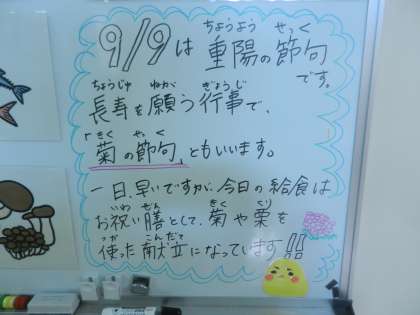 9/9は 重陽の節句
ちょうよう せっく
です。
ちょうじゅ ねが ぎょうじ
長寿を願う行事で、
きく やっく
「菊の節句」ともいいます。
一日、早いですが、今日の給食は
いわ ぜん きく くり
お祝い膳として、菊や栗を
つか こんだて
使った献立になっています!!